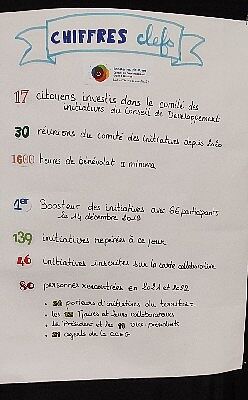 CHIFFRES clefs
17 citoyens investis dans le comité des
initiatives du Conseil de Développement
30 réunions du comité des initiatives depuis 2020
1600 heures de bénévolat minima
1er Booster des initiatives avec 66 participants
le 14 décembre
139 initiatives repérées à ce jour
46 initiatives inscrites sur la carte collaborative
80 personnes rencontrées en 2021 et 2022
. porteurs d'initiatives du territoire
. les Maires et leurs collaborateurs
. le Président et les vice-présidents
. 21 agents de la